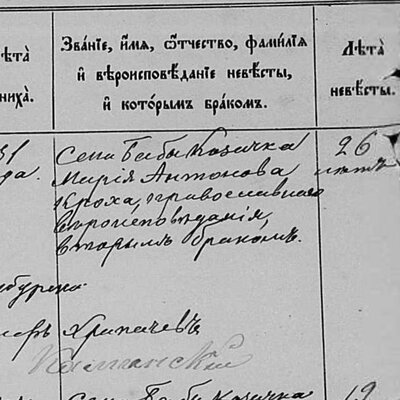 ѣта̀
ниха̀.
Зва́нїе, и҆́мѧ, ѻ҆́тчество, фамилїѧ
и҆ вѣроисповѣданїе невѣсты,
и҆ кото́рымъ бра́комъ.
Лѣта̀
невѣсты.
31
да.
Села Бабы Козачка
Марія Антонова
Кроха, православнаго
вѣроисповѣданія,
вторымъ бракомъ.
26
лѣтъ
Хрипачевъ
Каманскій
Села Бабы Козачка
19